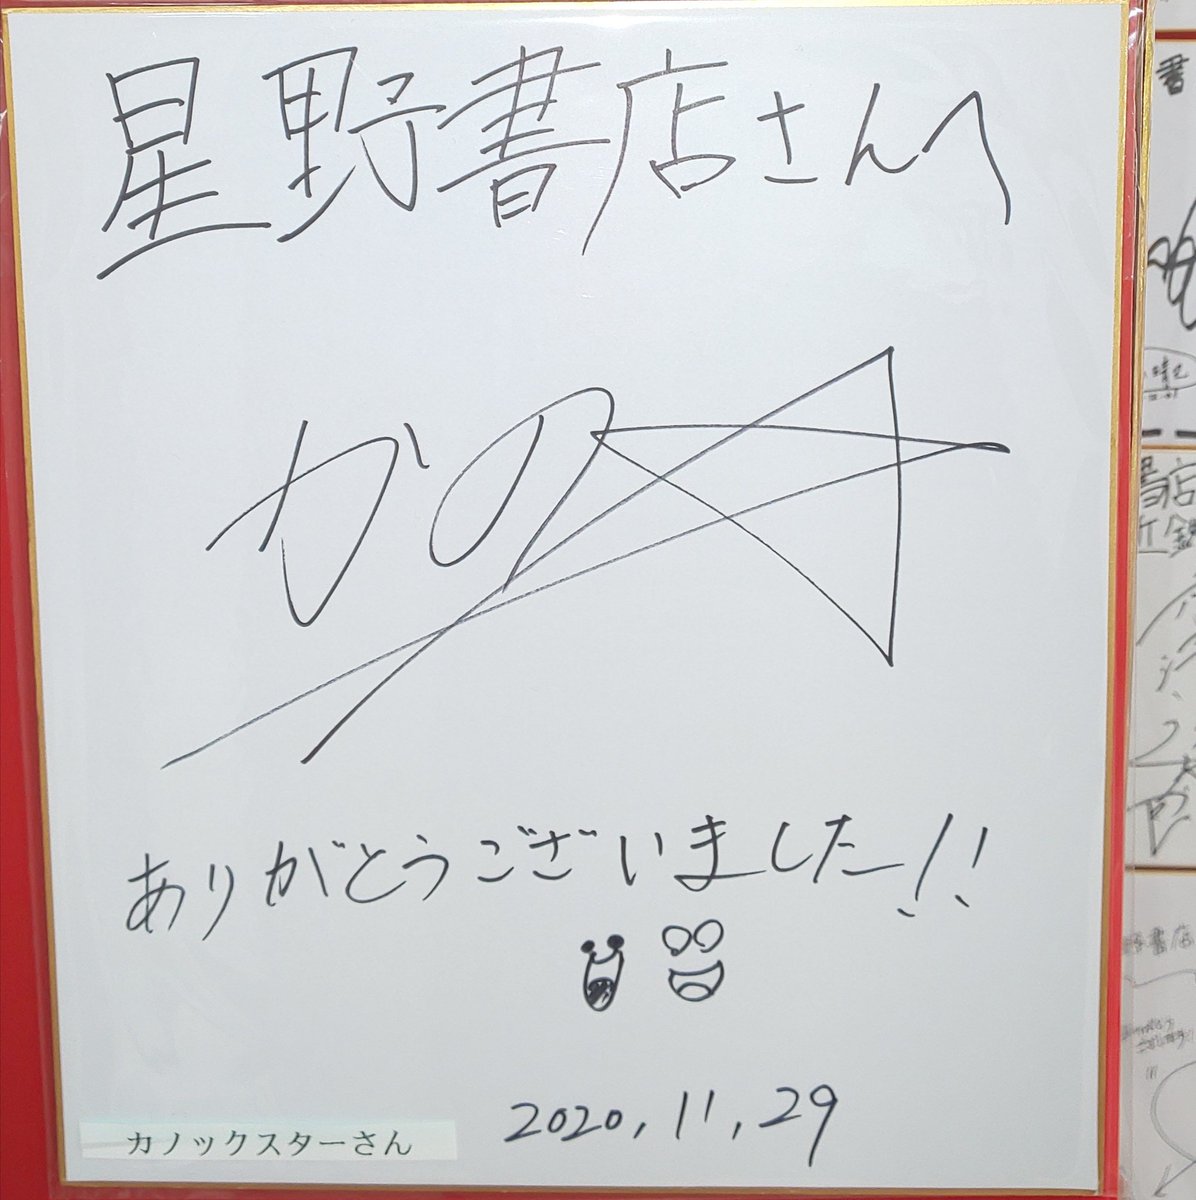 星野書店さんへ
かの
ありがとうございました!!
2020,11,29
カノックスターさん
書
晴己
書店
書店